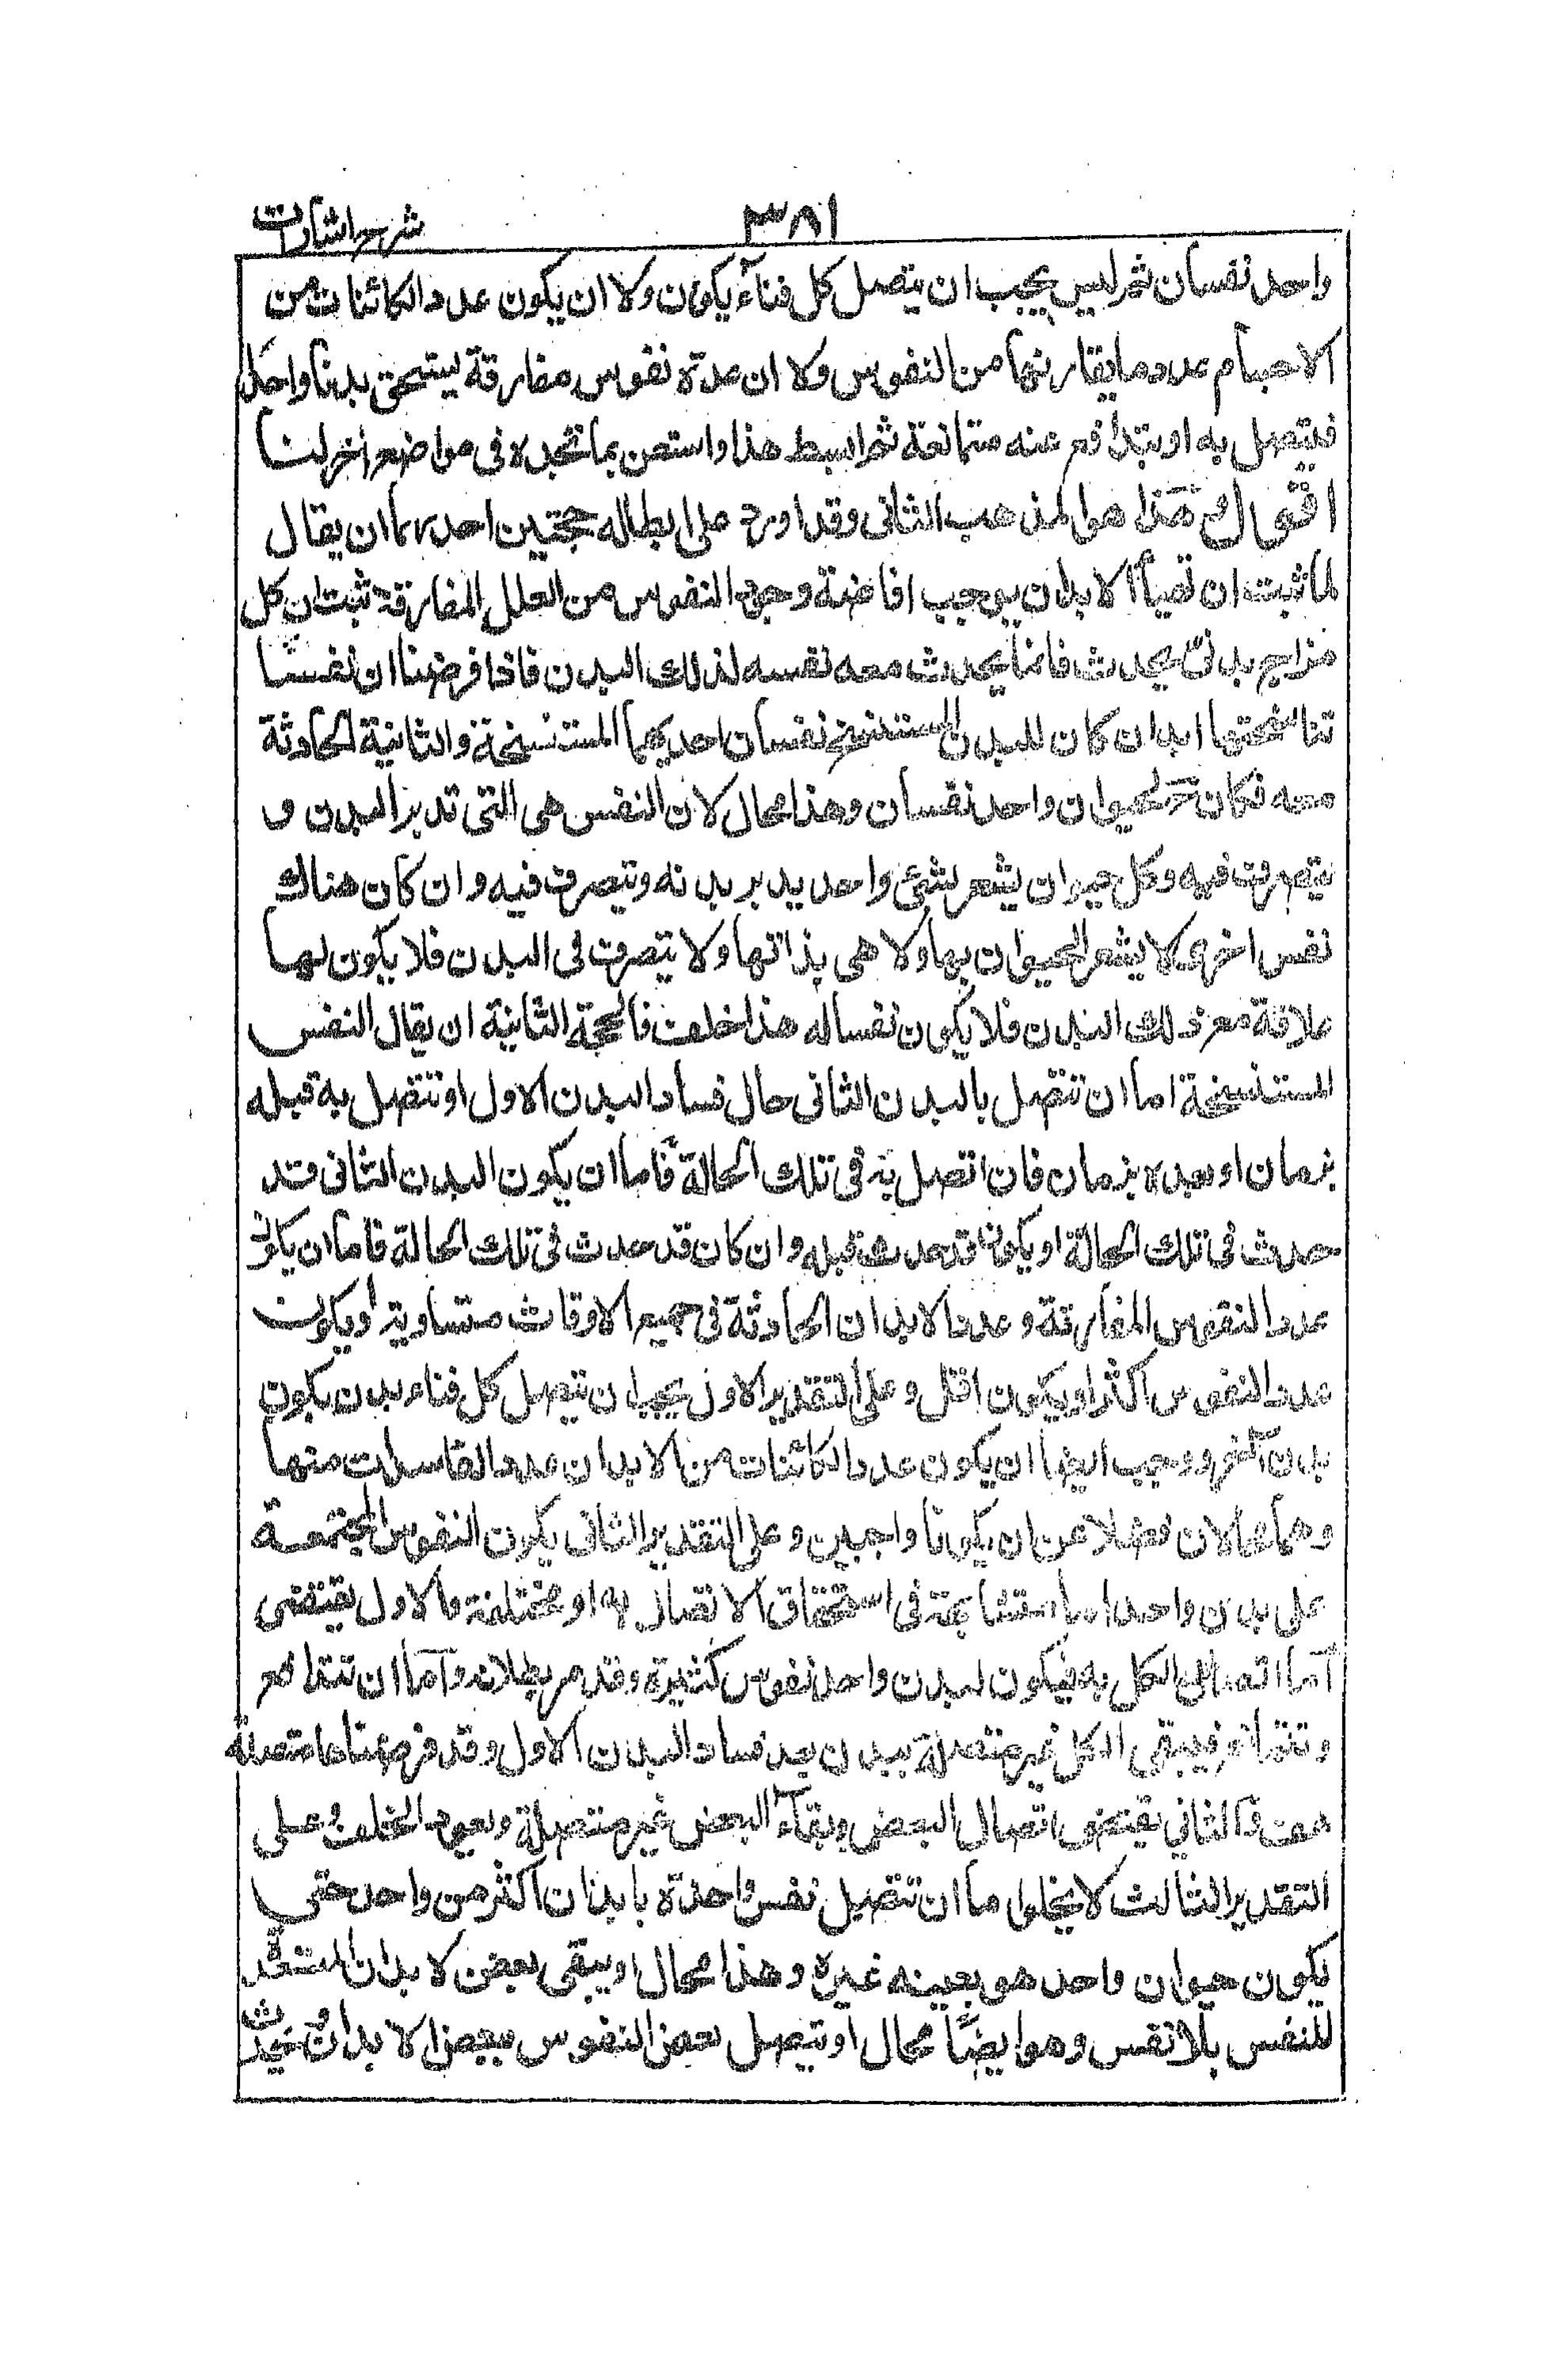 شرح اشارات
٣٨١
واحد نفسان ثم ليس يجب ان يتصل كل فناء بكون ولا ان يكون عدد الكائنات من
الاجسام عدد ما يفارقها من النفوس ولا ان عدة نفوس مفارقة يستحق بدنا واحدا
فيتصل به او يتدافع عنه متمانعة ثم ابسط هذا واستعن بما تجده فى مواضع اخر لنا
اقول هذا هو المذهب الثانى وقد اورد على ابطاله حجتين احدىهما ان يقال
لما ثبت ان تهيأ الابدان يوجب افاضة وجود النفوس من العلل المفارقة ثبت ان كل
مزاج بدنى يحدث فانما يحدث معه نفسه لذلك البدن فاذا فرضنا ان نفسا
تناسختها ابدان كان للبدن المستنسخ نفسان احديهما المستنسخة والثانية الحادثة
معه فكان ح لحيوان واحد نفسان وهذا محال لان النفس هى التى تدبر البدن و
يتصرف فيه وكل حيوان يشعر بشئ واحد يدبر بدنه ويتصرف فيه وان كان هناك
نفس اخرى لا يشعر الحيوان بها ولا هى بذاتها ولا يتصرف فى البدن فلا يكون لها
علاقة مع ذلك البدن فلا يكون نفسا له هذا خلف فالحجة الثانية ان يقال النفس
المستنسخة اما ان تتصل بالبدن الثانى حال فساد البدن الاول او تتصل به قبله
بزمان او بعده بزمان فان اتصل به فى تلك الحالة فاما ان يكون البدن الثانى قد
حدث فى تلك الحالة او يكون قد حدث قبله وان كان قد حدث فى تلك الحالة فاما ان يكون
عدد النفوس المفارقة وعدد الابدان الحادثة فى جميع الاوقات متساوية او يكون
عدد النفوس اكثر او يكون اقل وعلى التقدير الاول يجب ان يتصل كل فناء بدن بكون
بدن آخر ووجب ايضا ان يكون عدد الكائنات من الابدان عدد الفاسدات منها
وهما محالان فضلا عن ان يكونا واجبين وعلى التقدير الثانى يكون النفوس المجتمعة
على بدن واحد اما متشابهة فى استحقاق الاتصال به او مختلفة والاول يقتضى
اما اتصال الكل به فيكون لبدن واحد نفوس كثيرة وقد مر بطلانه واما ان تتدافع
وتتمانع فيبقى الكل غير متصلة ببدن بعد فساد البدن الاول وقد فرضناها متصلة
هف والثاني يقتضى اتصال البعض وبقاء البعض غير متصلة ويعود الخلف وعلى
التقدير الثالث لا يخلوا ما ان تتصل نفس واحدة بابدان اكثر من واحد حتى
يكون حيوان واحد هو بعينه غيره وهذا محال او يبقى بعض الابدان المستعد
للنفس بلا نفس وهو ايضا محال او يتصل بعض النفوس ببعض الابدان ويحدث